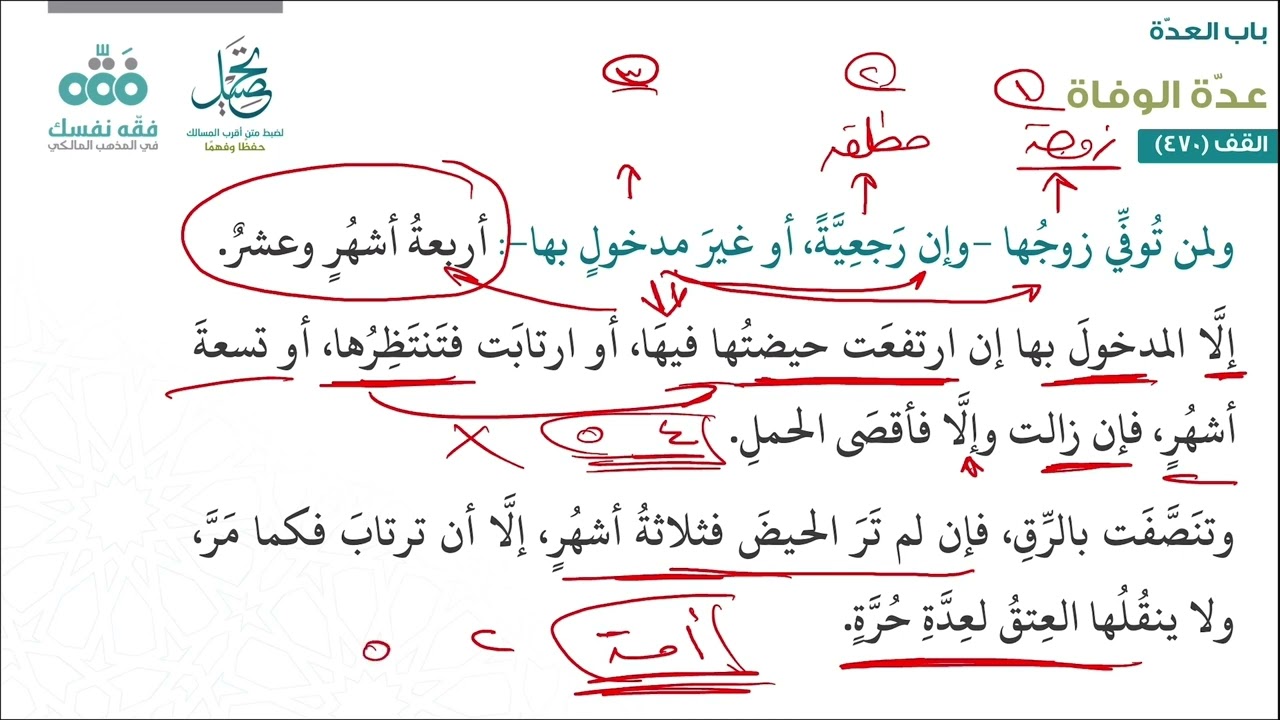 باب العدّة
عدّة الوفاة
القف (٤٧٠)
تحصيل
لضبط متن أقرب المسالك
حفظا وفهمًا
فقّه نفسك
في المذهب المالكي
١
٢
٣
زوجة
مطلقة
ولمن تُوفِّي زوجُها –وإن رَجعِيَّةً، أو غيرَ مدخولٍ بها–: أربعةُ أشهُرٍ وعشرٌ.
إلَّا المدخولَ بها إن ارتفعَت حيضتُها فيهَا، أو ارتابَت فتَنتَظِرُها، أو تسعةَ
أشهُرٍ، فإن زالت وإلَّا فأقصَى الحملِ.
٤ ٥
وتنَصَّفَت بالرِّقِ، فإن لم تَرَ الحيضَ فثلاثةُ أشهُرٍ، إلَّا أن ترتابَ فكما مَرَّ،
ولا ينقُلُها العِتقُ لعِدَّةِ حُرَّةٍ.
أمة
٢ ٥